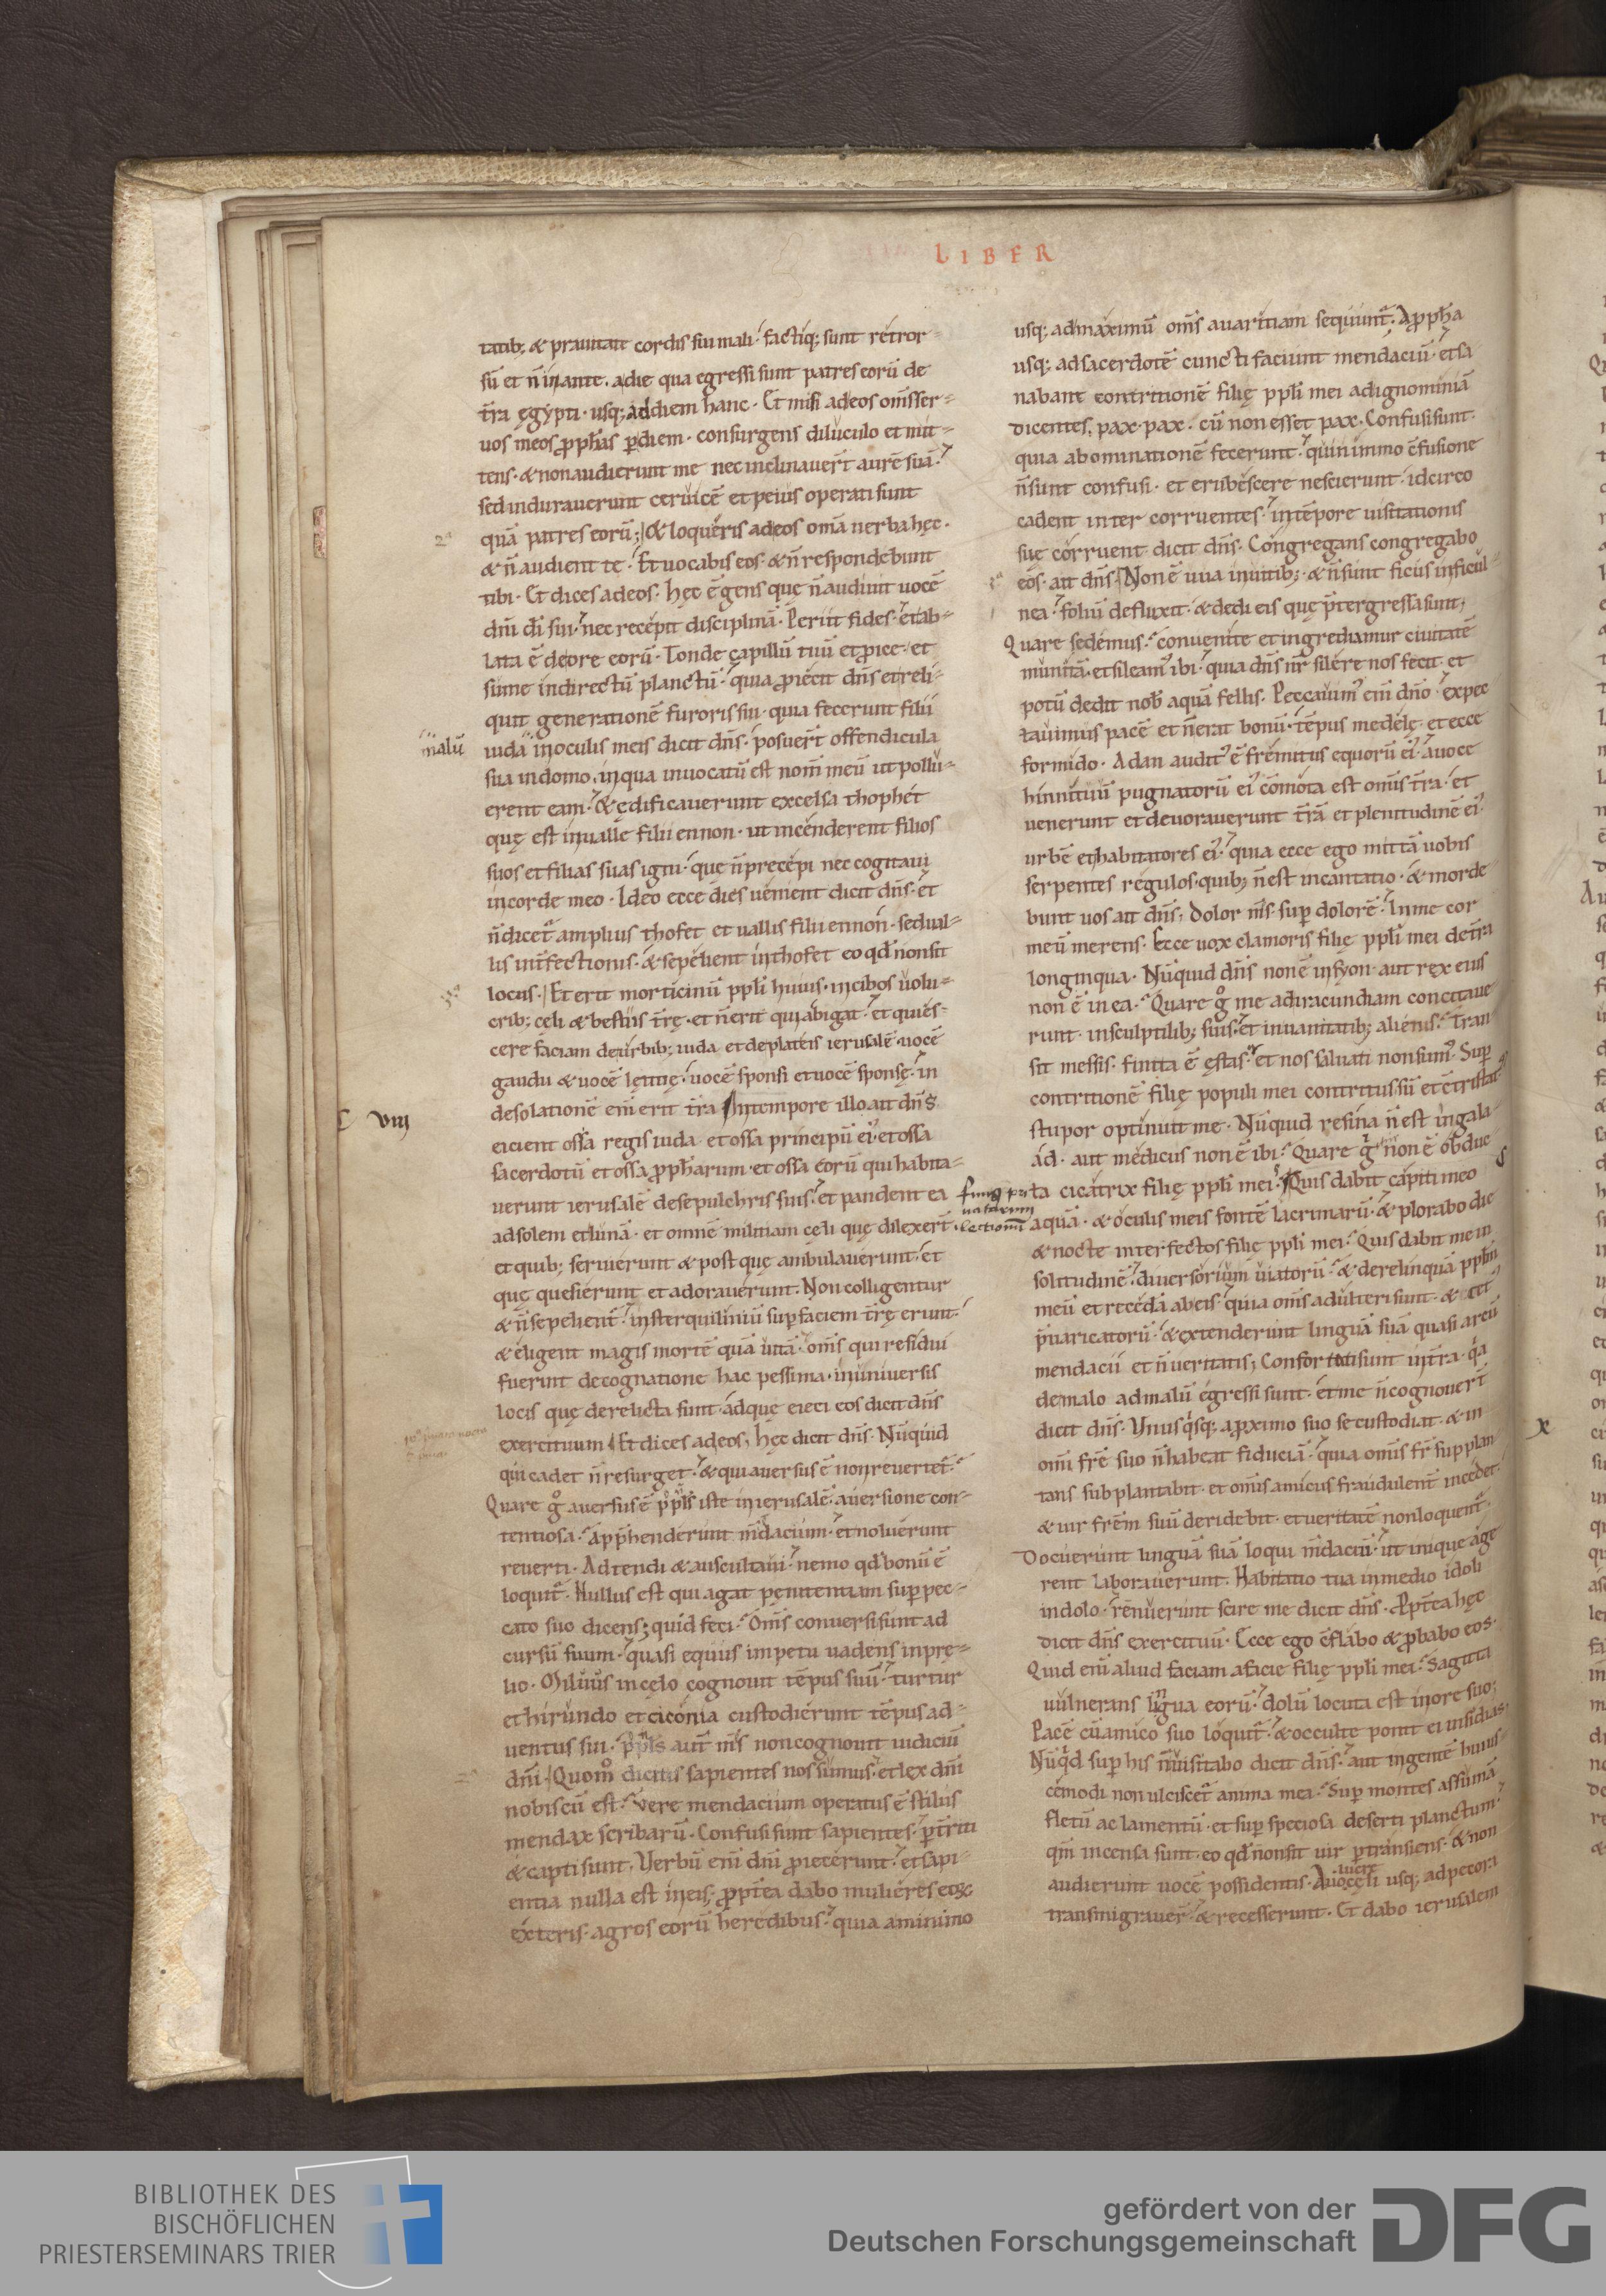 LIBER
tatib; & prauitate cordis sui mali· factiq; sunt retror-
sū et n̄ in ante. a die qua egressi sunt patres eorū de
t̄ra ęgypti· usq; ad diem hanc· Et misi ad eos om̄s ser-
uos meos ꝓph̄as ꝑ diem· consurgens diluculo et mit-
tens· & non audierunt me nec inclinauer̄t aurē suā·
sed indurauerunt ceruicē et peius operati sunt
2ᵃ
quā patres eorū; & loqueris ad eos om̄a uerba hęc·
& n̄ audient te· Et uocabis eos· & n̄ respondebunt
tibi· Et dices ad eos· hęc ē gens quę n̄ audiuit uocē
dn̄i dī sui· nec recepit disciplinā· Periit fides· et ab-
lata ē de ore eorū· Tonde capillū tuū et ꝓice· et
sume in directū planctū· quia ꝓiecit dn̄s et reli-
quit generationē furoris sui· quia fecerunt filii
malū
iuda in oculis meis dicit dn̄s· posuer̄t offendicula
sua in domo, in qua inuocatū est nom̄ meū ut pollu-
erent eam· & ędificauerunt excelsa thophet
quę est in ualle filii ennon· ut incenderent filios
suos et filias suas igni· que n̄ precepi nec cogitaui
in corde meo· Ideo ecce dies uenient dicit dn̄s· et
n̄ dicet᷑ amplius thofet et uallis filii ennon· sed ual-
lis int̄fectionis· & sepelient in thofet eo qd̄ non sit
3ᵃ
locus· Et erit morticinū ppl̄i huius· in cibos uolu-
crib; cęli & bestiis t̄rę· et n̄ erit qui abigat· et quies-
cere faciam de urbib; iuda et de plateis ierusalē· uocē
gaudii & uocē lętitię· uocē sponsi et uocē sponsę· in
desolationē eni̅ erit t̄ra In tempore illo ait dn̄s
C VIII
eicient ossa regis iuda et ossa principū ei᾽ et ossa
sacerdotū et ossa ꝓph̄arum· et ossa eorū qui habita-
uerunt ierusalē de sepulchris suis· et pandent ea
ad solem et lunā· et omnē militiam cęli quę dilexer̄t·
et quib; seruierunt & post quę ambulauerunt· et
quę quesierunt et adorauerunt· Non colligentur
& n̄ sepelient᷑· in sterquiliniū sup̄ faciem t̄rę erunt·
& eligent magis mortē quā uitā· om̄s qui residui
fuerint de cognatione hac pessima· in uniuersis
locis quę derelicta sunt· ad quę eieci eos dicit dn̄s
exercituum Et dices ad eos, hęc dicit dn̄s· Nūquid
qui cadet n̄ resurget· & qui auersus ē non reuertet᷑·
Quare g̊ auersus ē ppl̄s iste in ierusalē· auersione con-
tentiosa· App̄henderunt m̄dacium· et noluerunt
reuerti· Adtendi & auscultaui· nemo qd̄ bonū ē
loquit᷑· Nullus est qui agat pęnitentiam sup̄ pec-
cato suo dicens; quid feci· Om̄s conuersi sunt ad
cursū suum· quasi equus impetu uadens in prę-
lio· Miluus in cęlo cognouit tēpus suū· turtur
et hirundo et ciconia custodierunt tēpus ad-
uentus sui· ppl̄s aut̄ m̄s non cognouit iudiciū
2ᵃ
dn̄i· Quom̊ dicitis sapientes nos sumus· et lex dn̄i
nobiscū est· Vere mendacium operatus ē stilus
mendax scribarū· Confusi sunt sapientes· ꝑt̄riti
& capti sunt. Verbū eni̅ dn̄i ꝓiecerunt· et sapi-
entia nulla est in eis; ꝓpt̄ea dabo mulieres eoꝝ
exteris· agros eorū heredibus· quia a minimo
usq; ad maximū om̄s auaritiam sequunt᷑· A ꝓph̄a
usq; ad sacerdotē cuncti faciunt mendaciū· et sa
nabant contritionē filię ppl̄i mei ad ignominiā
dicentes, pax· pax· cū non esset pax· Confusi sunt·
quia abominationē fecerunt· quin immo c̄fusione
n̄ sunt confusi· et erubescere nescierunt· idcirco
cadent inter corruentes· in tēpore uisitationis
suę corruent dicit dn̄s· Congregans congregabo
3ᵃ
eos· ait dn̄s· Non ē uua in uitib; & n̄ sunt ficus in ficul-
nea· foliū defluxit· & dedi eis quę p̄tergressa sunt;
Quare sedemus· conuenite et ingrediamur ciuitatē
munitā· et sileam᾽ ibi· quia dn̄s nr̄ silere nos fecit· et
potū dedit nob̄ aquā fellis· Peccauim᾽ eni̅ dn̄o· expec
tauimus pacē et n̄ erat bonū· tēpus medelę· et ecce
formido· A dan audit᾽ ē fremitus equorū ei᾽· a uoce
hinnituū pugnatorū ei᾽ cōmota est om̄is t̄ra· et
uenerunt et deuorauerunt t̄rā et plenitudinē ei᾽
urbē et habitatores ei᾽· quia ecce ego mittā uobis
serpentes regulos· quib; n̄ est incantatio· & morde
bunt uos ait dn̄s; Dolor m̄s· sup̄ dolorē· In me cor
meū merens· Ecce uox clamoris filię ppl̄i mei de t̄ra
longinqua· Nūquid dn̄s non ē in syon· aut rex eius
non ē in ea· Quare g̊ me ad iracundiam concitaue
runt· in sculptilib; suis· et in uanitatib; alienis· Tran
siit messis· finita ē ęstas· et nos saluati non sum᾽· Sup̄
contritionē filię populi mei contritus sū et c̄tristat᾽
stupor optinuit me· Nūquid resina n̄ est in gala-
ad· aut medicus non ē ibi· Quare g̊ non ē obduc
ta cicatrix filię ppl̄i mei· Quis dabit capiti meo
aquā· & oculis meis fontē lacrimarū· & plorabo die
& nocte interfectos filię ppl̄i mei· Quis dabit me in
solitudinē· diuersorium uiatorū· & derelinquā ppl̄m
meū et recedā ab eis· quia om̄s adulteri sunt· & cet᾽
p̄uaricatorū· & extenderunt linguā suā quasi arcū
mendacii et n̄ ueritatis; Confortati sunt in t̄ra· qᵃ
de malo ad malū egressi sunt· et me n̄ cognouer̄t
dicit dn̄s· Vnusqⁱsq; a ꝓximo suo se custodiat· & in
X
omī fr̄e suo n̄ habeat fiduciā· quia omīs fr̄ supplan
tans subplantabit· et omīs amicus fraudulent̄ incedet·
& uir fr̄em suū deridebit· et ueritatē non loquent᷑·
Docuerunt linguā suā loqui m̄daciū· ut inique age
rent laborauerunt· Habitatio tua in medio idoli
in dolo· renuerunt scire me dicit dn̄s· Ꝓpt̄ea hęc
dicit dn̄s exercituū· Ecce ego c̄flabo & ꝓbabo eos·
Quid eni̅ aliud faciam a facie filię ppl̄i mei· Sagitta
uulnerans lingua eorū· dolū locuta est in ore suo;
Pacē cū amico suo loquit᷑· & occulte ponit ei insidias·
Nūqⁱd sup̄ his n̄ uisitabo dicit dn̄s· aut in gentē huius-
cemodi non ulciscet᷑ anima mea· Sup̄ montes assumā
fletū ac lamentū· et sup̄ speciosa deserti planctum·
qm̄ incensa sunt· eo qd̄ n̄ sit uir ꝑtransiens· & non
audierunt uocē possidentis· A uolucre cęli usq; ad pecora
transmigrauer̄· & recesserunt· Et dabo ierusalem
BIBLIOTHEK DES
BISCHÖFLICHEN
PRIESTERSEMINARS TRIER
gefördert von der
Deutschen Forschungsgemeinschaft
DFG